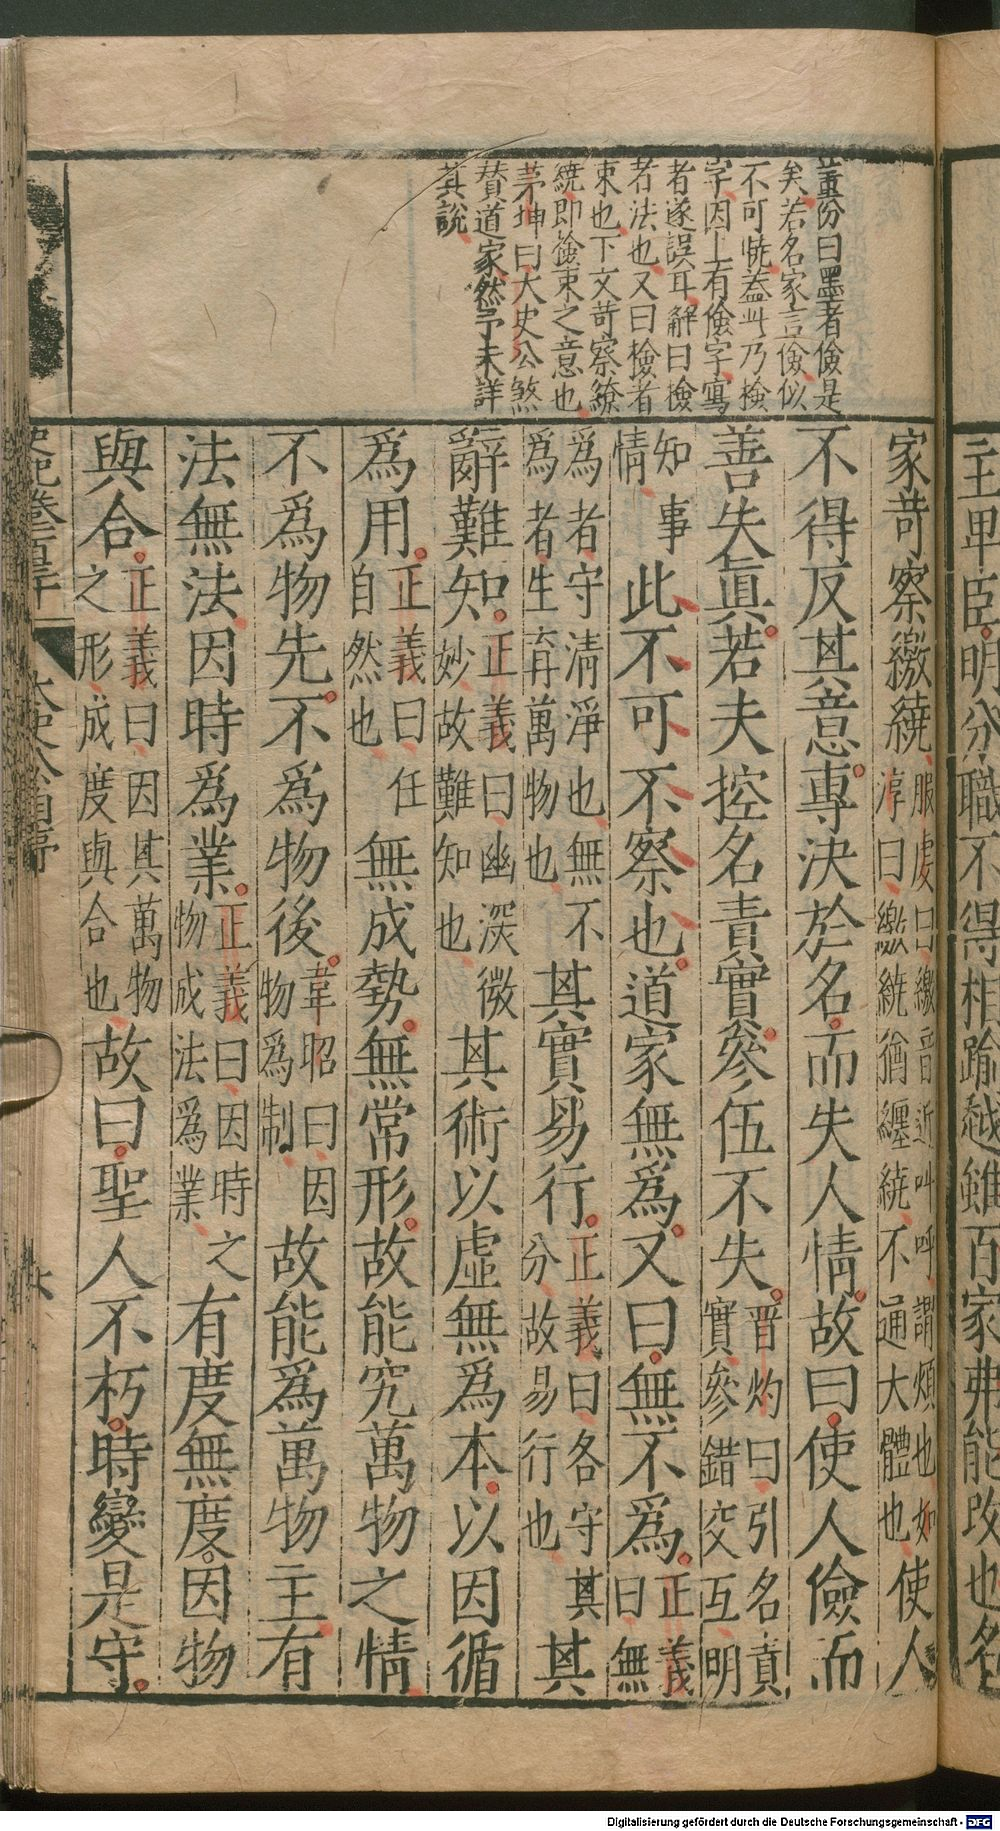 主卑臣明分職不得相踰越雖百家弗能改也名
董份曰墨者儉是
矣若名家言儉似
不可曉蓋此乃檢
字因上有儉字寫
者遂誤耳解曰檢
若法也又曰檢者
束也下文苛察繳
繞即檢束之意也
茅坤曰大史公煞
賛道家然予未詳
其說
家苛察繳繞服虔曰繳音近叫呼謂煩也如淳曰繳繞猶纏繞不通大體也使人
不得反其意專決於名而失人情故曰使人儉而
善失眞若夫控名責實參伍不失晉灼曰引名責實參錯交互明
知事情此不可不察也道家無爲又曰無不爲正義曰無
爲者守清淨也無不爲者生育萬物也其實易行正義曰各守其分故易行也其
辭難知正義曰幽深微妙故難知也其術以虛無爲本以因循
爲用正義曰任自然也無成勢無常形故能究萬物之情
不爲物先不爲物後韋昭曰因物爲制故能爲萬物主有
法無法因時爲業正義曰因時之物成法爲業有度無度因物
與合正義曰因其萬物之形成度與合也故曰聖人不朽時變是守
史記卷一百三十 太史公自序 六
Digitalisierung gefördert durch die Deutsche Forschungsgemeinschaft - DFG